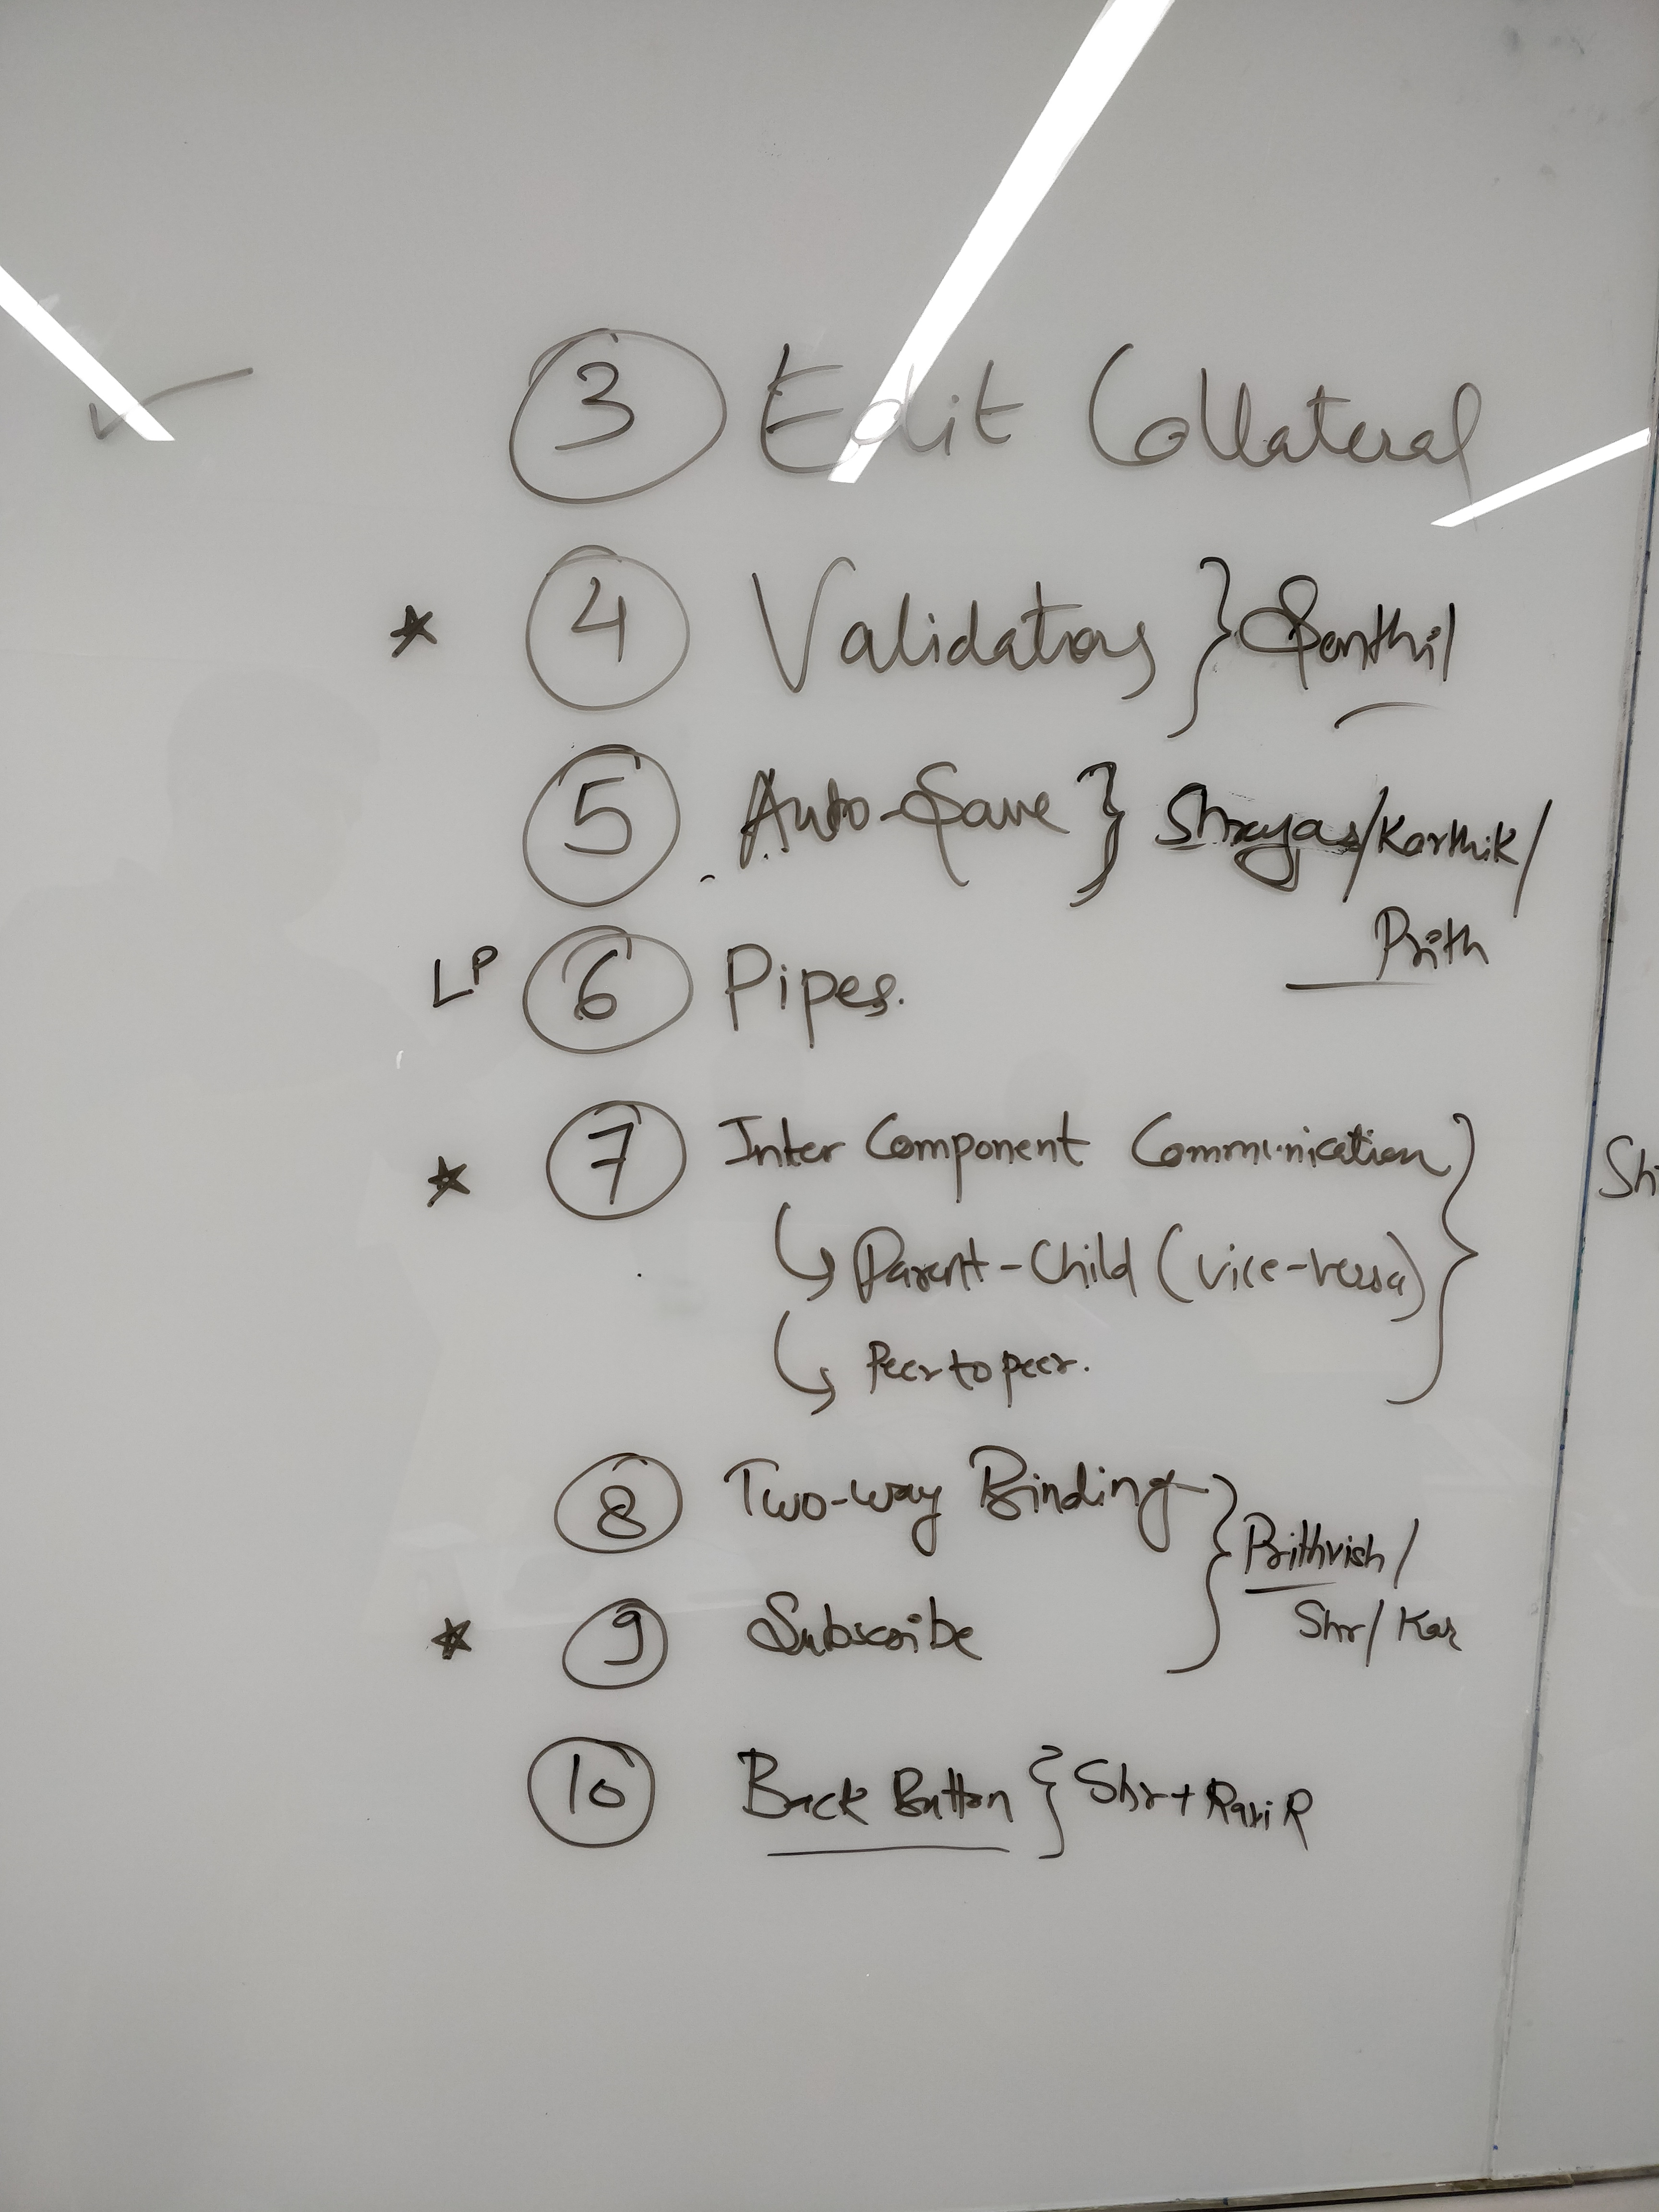 ✓ ③ Edit Collateral
★ ④ Validators } Senthil
⑤ Auto-Save } Shreyas/Karthik/
Prith
LP ⑥ Pipes.
★ ⑦ Inter Component Communication }
↳ Parent-Child (vice-versa)
↳ Peer to peer.
⑧ Two-way Binding }
Prithvish/
★ ⑨ Subscribe
Shr/Kar
⑩ Back Button } Shr + Ravi R